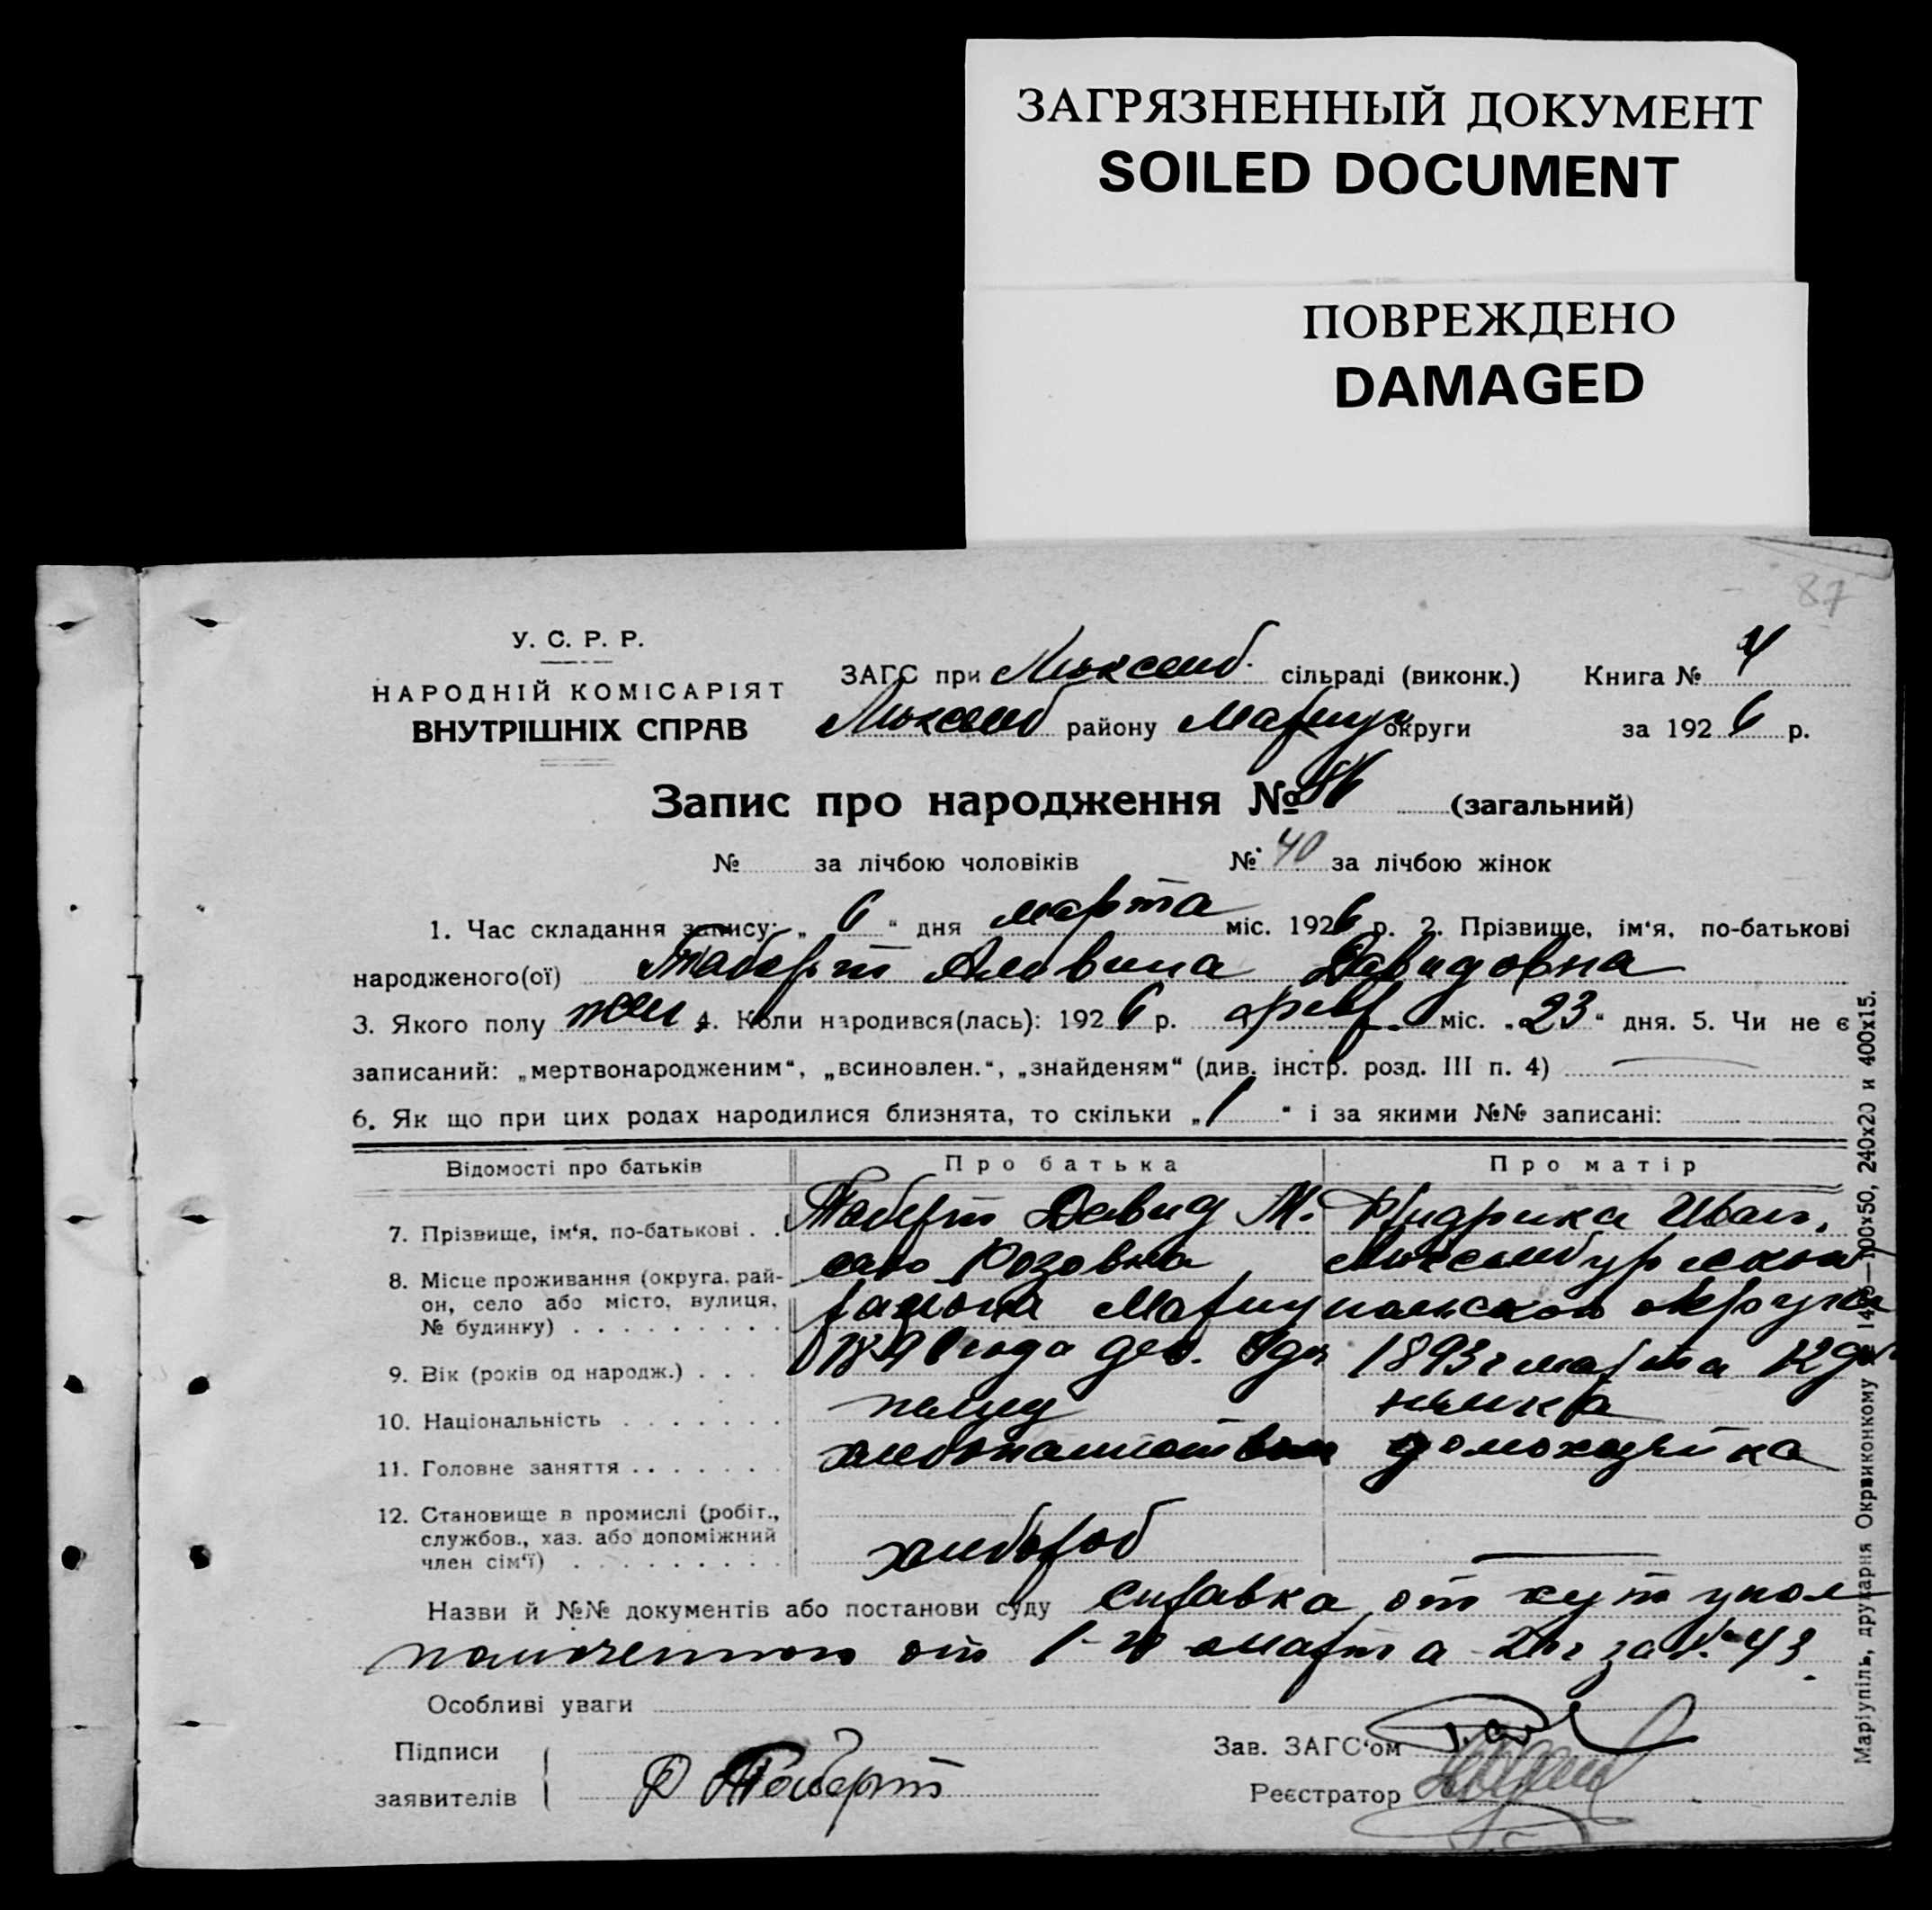 ЗАГРЯЗНЕННЫЙ ДОКУМЕНТ
SOILED DOCUMENT
ПОВРЕЖДЕНО
DAMAGED
87
У. С. Р. Р.
НАРОДНІЙ КОМІСАРІЯТ
ВНУТРІШНІХ СПРАВ
ЗАГС при Люксемб. сільраді (виконк.) Книга № 4
Люксемб району Мариуп округи за 1926 р.
Запис про народження № (загальний)
№ за лічбою чоловіків № 40 за лічбою жінок
1. Час складання запису: „ 6 “ дня марта міс. 1926 р. 2. Прізвище, ім‘я, по-батькові
народженого(ої) Таберт Альвина Давидовна
3. Якого полу жен. 4. Коли народився(лась): 1926 р. февр. міс. „23“ дня. 5. Чи не є
записаний: „мертвонародженим“, „всиновлен.“, „знайденям“ (див. інстр. розд. III п. 4)
6. Як що при цих родах народилися близнята, то скільки „1“ і за якими №№ записані:
Відомості про батьків Про батька Про матір
7. Прізвище, ім‘я, по-батькові . . Таберт Давид М. Фридрика Иван.
8. Місце проживання (округа, рай- село Розовка Люксембургского
он, село або місто, вулиця, района Мариупольской округи
№ будинку) . . . . . . . . .
9. Вік (років од народж.) . . . года дек. 1893 г марта 12 дня
10. Національність . . . . . . . немец немка
11. Головне заняття . . . . . . . хлебопашеством домохозяйка
12. Становище в промислі (робіт.,
службов., хаз. або допоміжний
член сім‘ї) . . . . . . . . . хлебороб
Назви й №№ документів або постанови суду справка от хут упол
номоченного от 1-го марта 26 г за № 43.
Особливі уваги
Підписи Зав. ЗАГС‘ом
заявителів Д Таберт Реєстратор
Маріупіль, друкарня Окрвиконкому 145—100х50, 240х20 и 400х15.